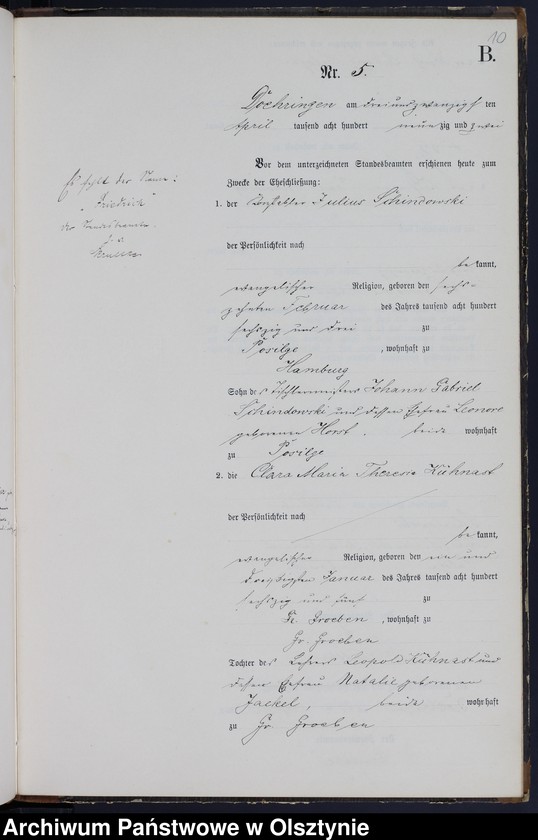 10
B.
Nr. 5.
Döhringen am dreiundzwanzigsten
April tausend acht hundert neunzig und zwei
Vor dem unterzeichneten Standesbeamten erschienen heute zum
Zwecke der Eheschließung:
1. der Julius Schindowski
der Persönlichkeit nach
bekannt,
evangelischer Religion, geboren den sechs-
zehnten Februar des Jahres tausend acht hundert
sechszig und drei zu
Posilge, wohnhaft zu
Hamburg
Sohn des Tischlermeisters Johann Gabriel
Schindowski und dessen Ehefrau Leonore
geborenen Horst. beide wohnhaft
zu Posilge
2. die Clara Maria Theresia Kühnast
der Persönlichkeit nach
bekannt,
evangelischer Religion, geboren den ein und
dreißigsten Januar des Jahres tausend acht hundert
sechszig und fünf zu
Gr. Groeben, wohnhaft zu
Gr. Groeben
Tochter des Lehrers Leopold Kühnast und
dessen Ehefrau Natalie geborenen
Jaekel, beide wohnhaft
zu Gr. Groeben
Es fehlt der Name:
"Friedrich"
Der Standesbeamte.
Archiwum Państwowe w Olsztynie